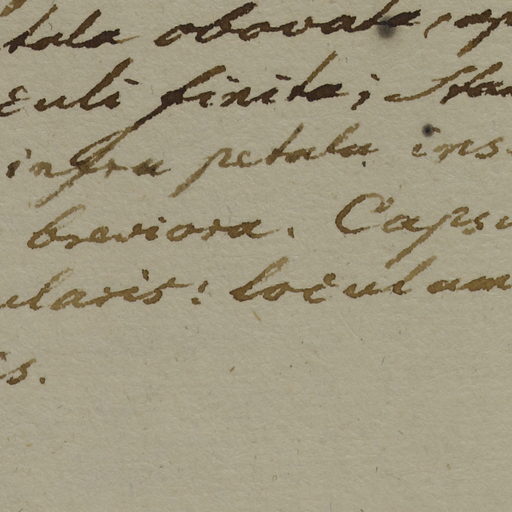 tala obovata, ap
euli finita; Sta
infra petala ins
breviora. Capsu
ularis: loculam
is.